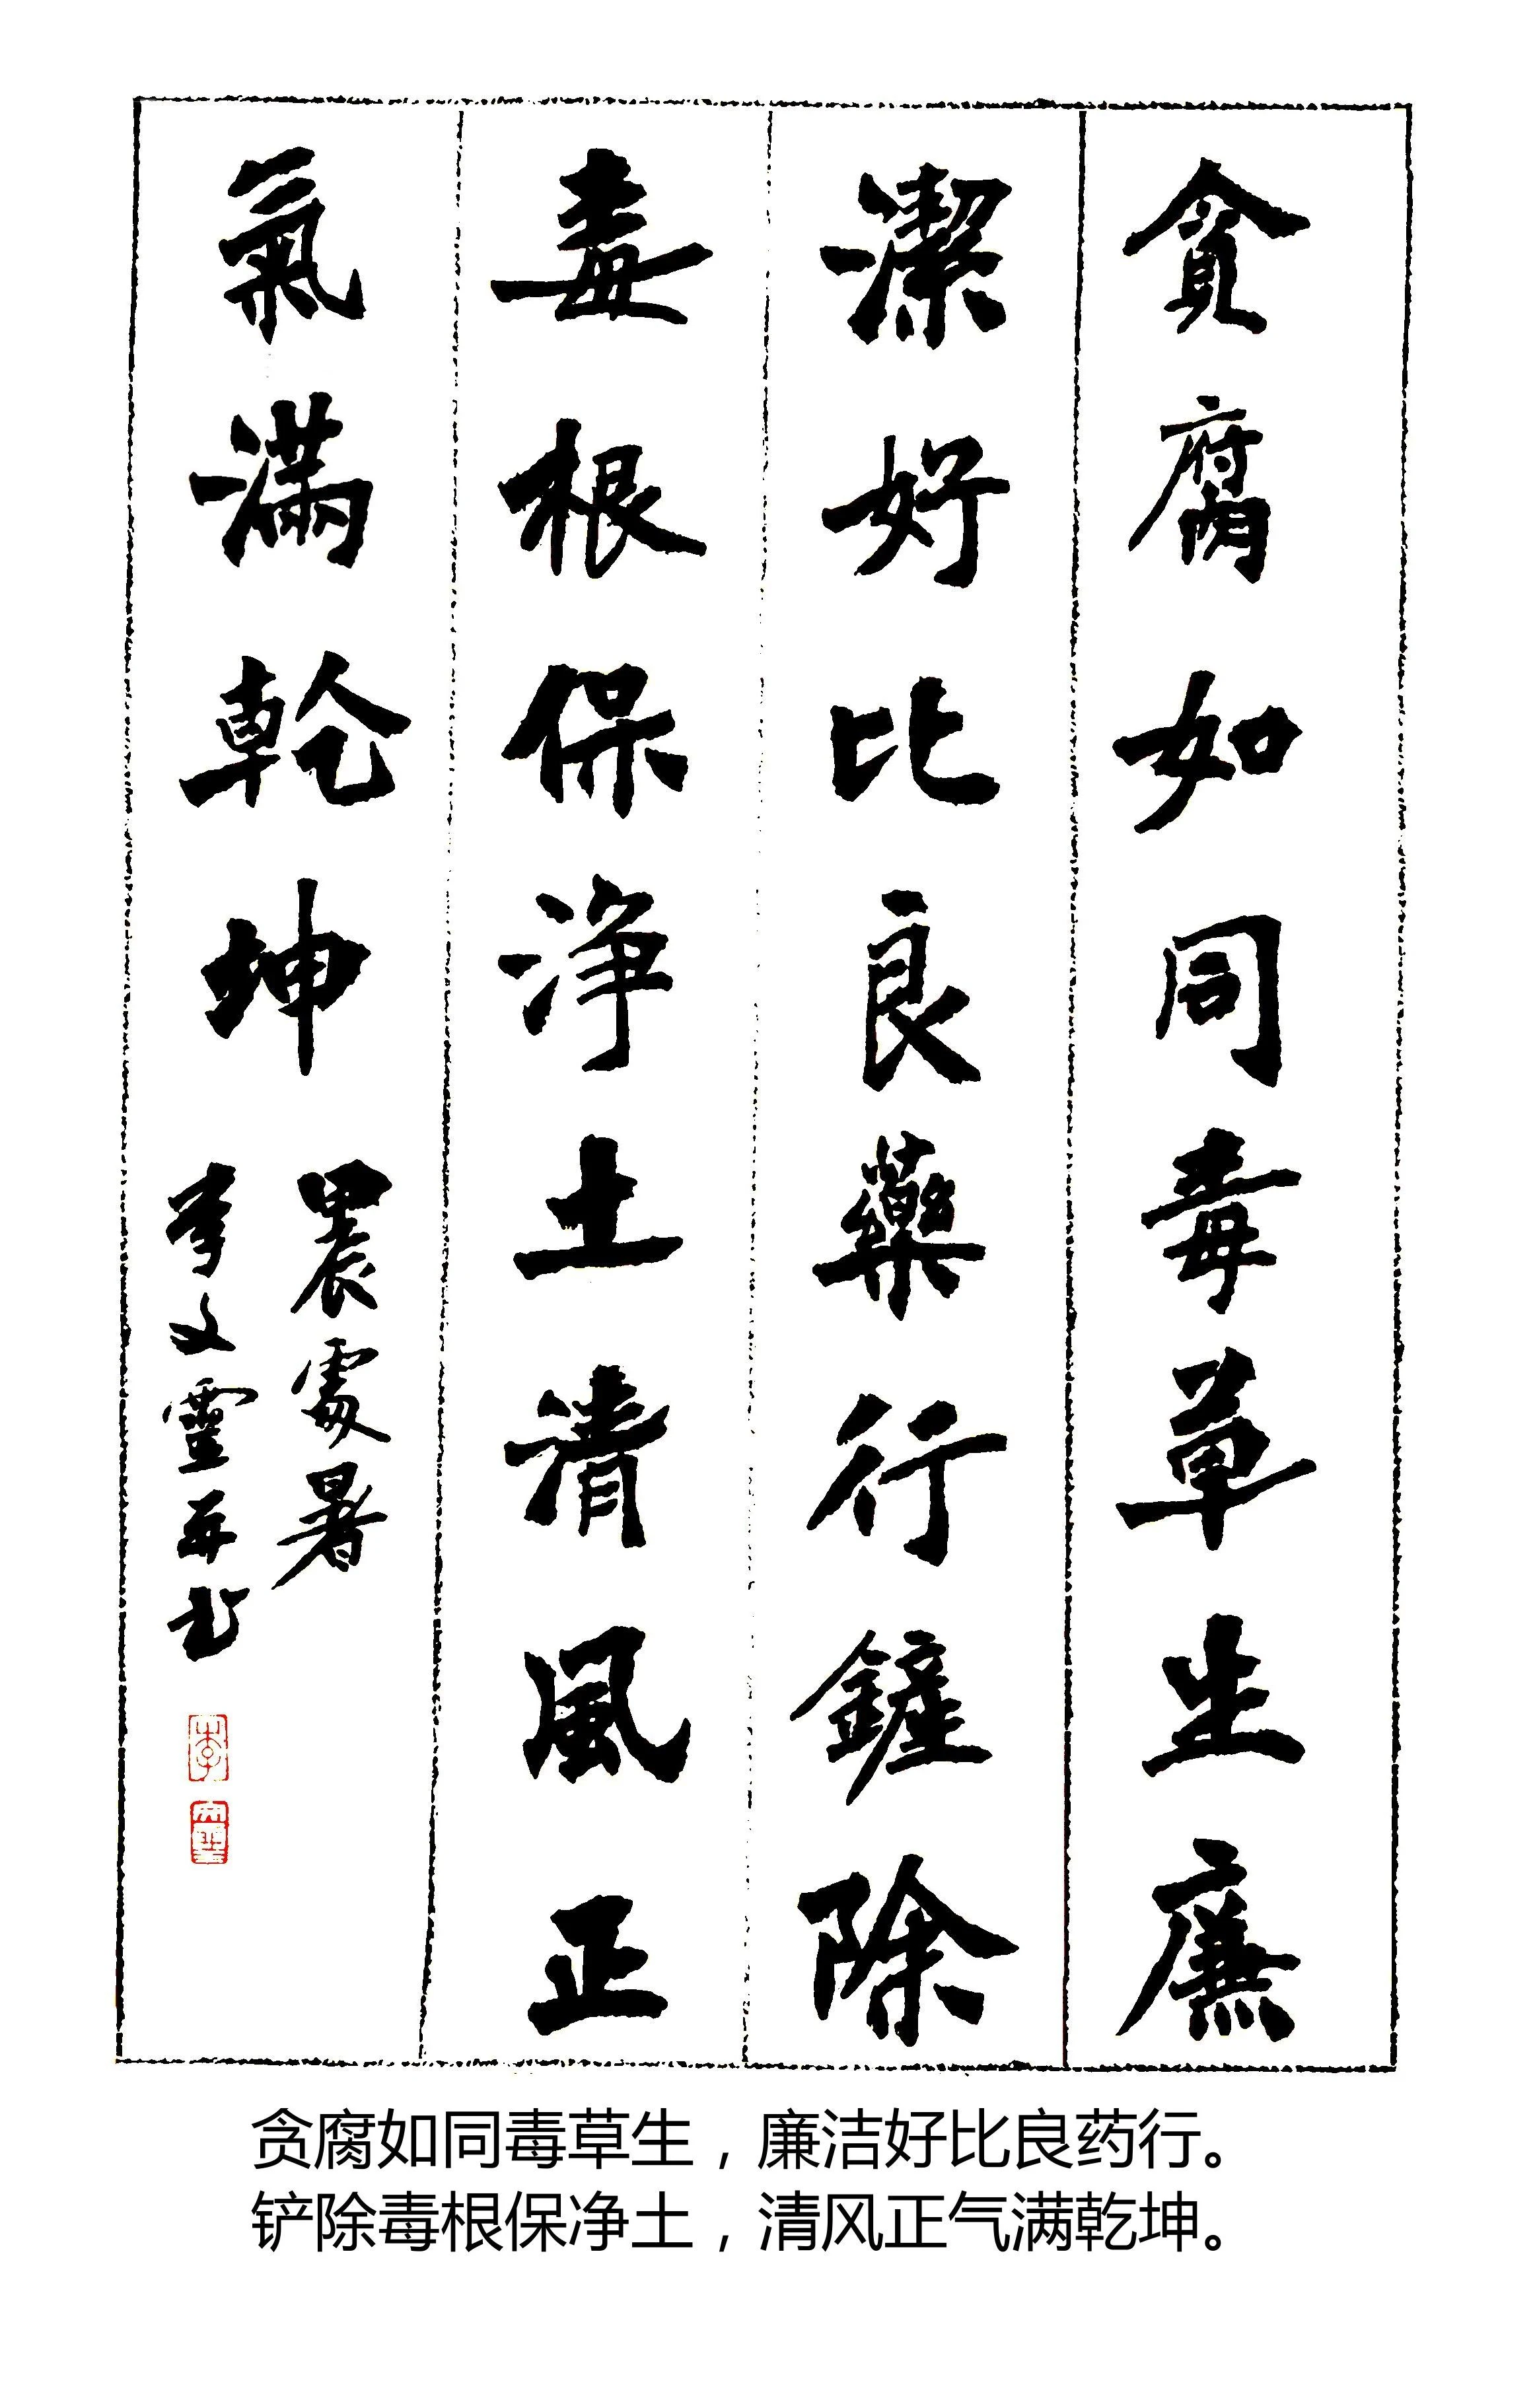 貪腐如同毒草生廉
潔好比良藥行鏟除
毒根保净土清風正
氣滿乾坤
甲辰處暑
李文靈并书
李
文靈
贪腐如同毒草生，廉洁好比良药行。
铲除毒根保净土，清风正气满乾坤。